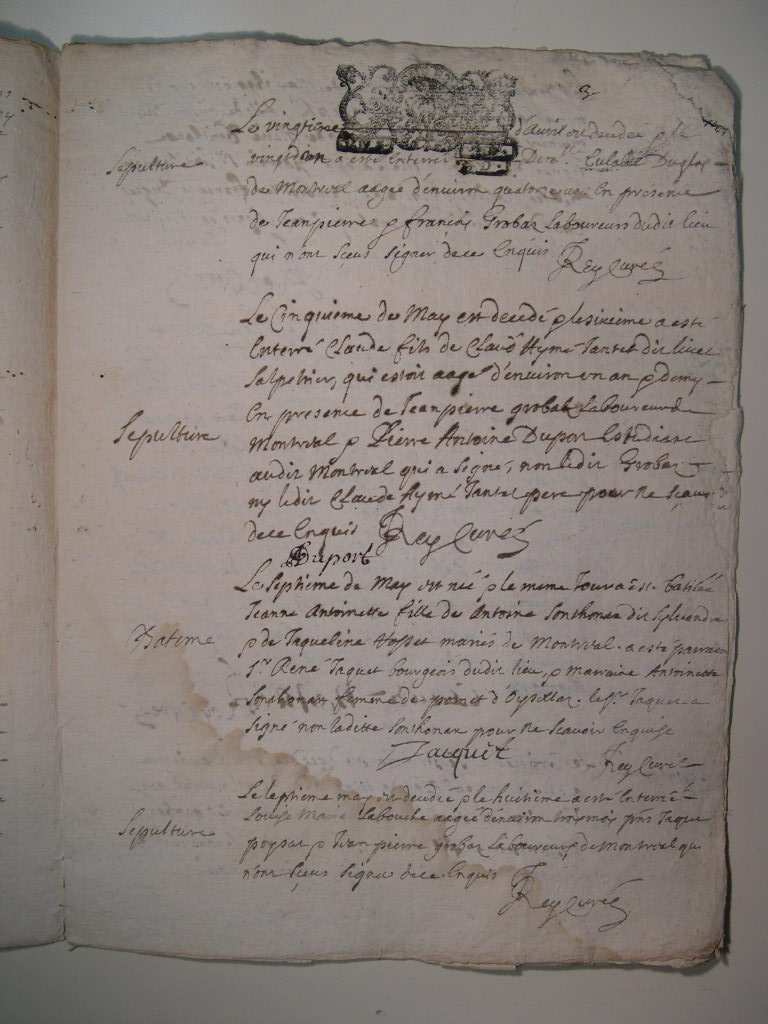 3
Le vingtieme d'auril est decedée & le
Sepulture
a esté Enterré
de Montreal aagée d'enuiron quatorze ans En presence
de Jeanpierre & francois Grobas Laboureurs dudit lieu
qui n'ont sceus signer de ce Enquis Rey Curé
Le Cinquieme de May est decedé & le sixieme a esté
Enterré Claude fils de Claude Aymé Tantet dit
Salpetrier, qui estoit aagé d'enuiron en an & demy
En presence de Jeanpierre grobas Laboureur de
Sepulture
Montreal & Pierre Antoine Duport Estudiant
audit Montreal qui a signé, non ledit Grobas
ny ledit Claude Aymé Tantet pere pour ne sçauoir
de ce Enquis Rey Curé
Duport
Le Septieme de May est née & le meme Jour a esté batisée
Jeanne Antoinette fille de Antoine Sonthonax dit
Batême
& de Jaqueline mariés de Montreal. a esté parrain
Sr. René Jaquet bourgeois dudit lieu, & marraine Antoinette
Sonthonax femme de d'Oysellaz. le Sr. Jaquet a
signé non laditte Sonthonax pour ne scauoir Enquise
Jacquet
Rey Curé
Le septieme may est decedée & le huitieme a esté Enterré
Louise Marie Labouche aagée d'enuiron trois mois
Sepulture
& Jean pierre grobas Laboureurs de Montreal qui
n'ont sçeus signer de ce Enquis
Rey Curé